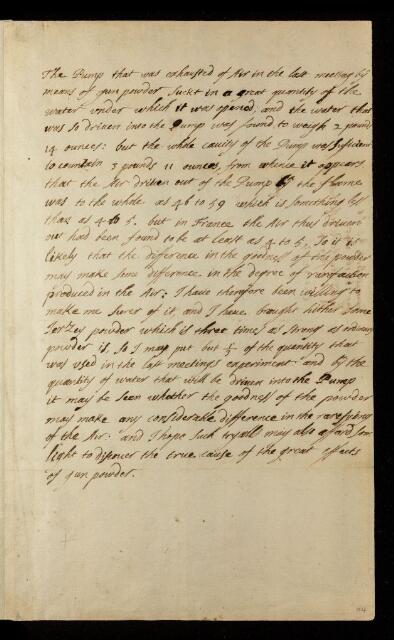 The Pump that was exhausted of Air in the last meeting by
means of gun powder, suckt in a great quantity of the
water under which it was opened, and the water that
was so driven into the Pump was found to weigh 2 pounds
14 ounces: but the whole cavity of the Pump was sufficient
to contain 3 pounds 11 ounces, from whence it appears
that the Air driven out of the Pump by the flame
was to the whole as 46 to 59 which is something less
than as 4 to 5. but in France the Air thus driven
out had been found to be at least as 4 to 5, So it is
likely that the difference in the goodness of the powder
may make some difference in the degree of rarefaction
produced in the Air; I have therefore been willing to
make me surer of it, and I have bought hither some
powder which is three times as strong as ordinary
powder is, So I may put but ⅓ of the quantity that
was used in the last meetings experiment: and by the
quantity of water that will be driven into the Pump
it may be seen whether the goodness of the powder
may make any considerable difference in the rarefying
of the Air: and I hope such tryall may also afford some
light to discover the true cause of the great effects
of gun powder.